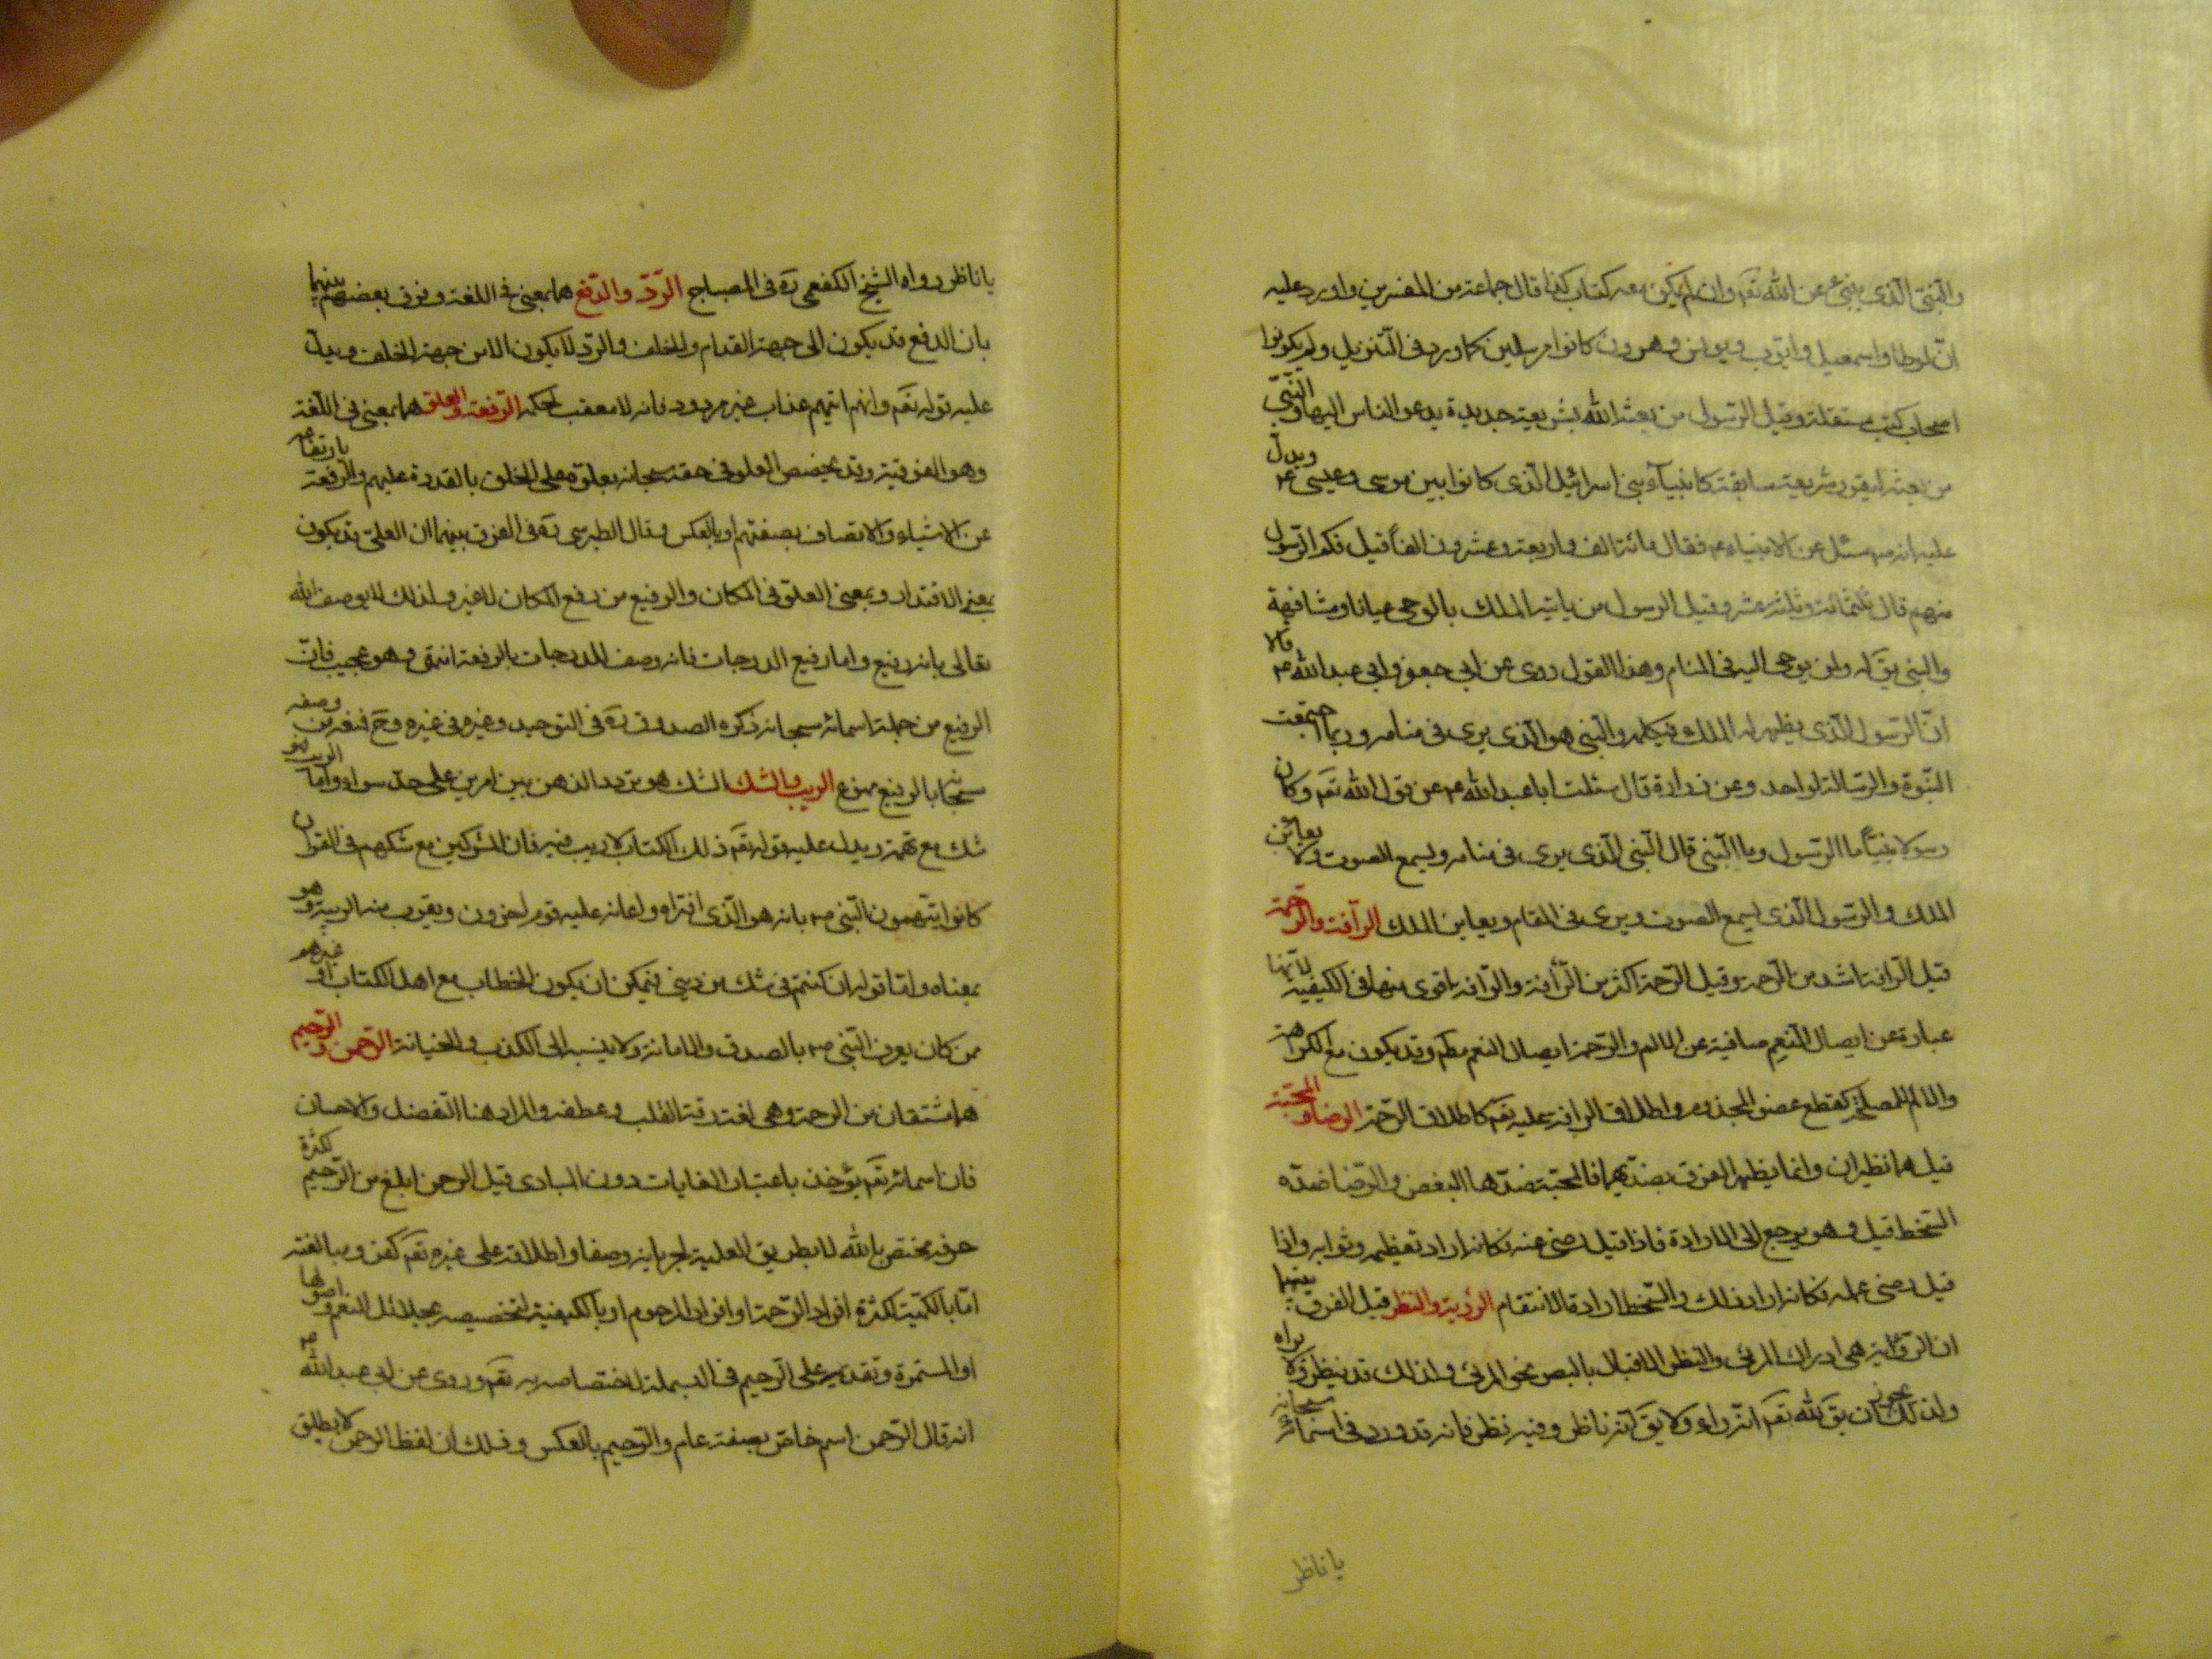 والنبي الذي ينبئ عن الله تعم وان لم يكن معه كتاب كذا قال جماعة من المفسرين واورد عليه
ان لوطا واسمعيل وايوب ويونس وهرون كانوا مرسلين كما ورد في التنزيل ولم يكونوا
اصحاب كتب مستقلة وقيل الرسول من بعثه الله بشريعة جديدة يدعو الناس اليها والنبي
من بعثه لتقرير شريعة سابقة كانبياء بني اسرائيل الذي كانوا بين موسى وعيسى ع ويدل
عليه انه ص سئل عن الانبياء ع فقال مائة الف واربعة وعشرون الفا قيل فكم الرسول
منهم قال ثلثمائة وثلثة عشر وقيل الرسول من ياتيه الملك بالوحي عيانا ومشافهة
والنبي يق له ولمن يوحى اليه في المنام وهذا القول روى عن ابي جعفر وابي عبد الله ع قالا
ان الرسول الذي يظهر له الملك فيكلمه والنبي هو الذي يرى في منامه وربما اجتمعت
النبوة والرسالة لواحد وعن زرارة قال سئلت ابا عبد الله ع عن قول الله تعم وكان
رسولا نبيا ما الرسول وما النبي قال النبي الذي يرى في منامه ويسمع الصوت ولا يعاين
الملك والرسول الذي يسمع الصوت ويرى في المقام ويعاين الملك الرأفة والرحمة
قيل الرافة اشد من الرحمة وقيل الرحمة اكثر من الرأفة والرافة اقوى منها في الكيفية لانها
عبارة عن ايصال النعم صافية عن الالم والرحمة ايصال النعم مطم وقد يكون مع الكراهة
والالم للمصلحة كقطع عضو المجذوم واطلاق الرافة عليه تعم كاطلاق الرحمة الرضا والمحبة
قيل هما نظيران وانما يظهر الفرق بضديهما فالمحبة ضدها البغض والرضا ضده
السخط قيل وهو يرجع الى الارادة فاذا قيل رضى عنه فكانه اراد تعظيمه وثوابه واذا
قيل رضى عمله فكانه اراد ذلك والسخط ارادة الانتقام الرؤية والنظر قيل الفرق بينهما
ان الرؤية هي ادراك المرئي والنظر الاقبال بالبصر نحو المرئي ولذلك قد ينظر ولا يراه
ولذلك يجوز ان يق لله تعم انه راء ولا يق انه ناظر وفيه نظر فانه قد ورد في اسمائه سبحانه
يا ناظر
يا ناظر رواه الشيخ الكفعمي ره في المصباح الرد والدفع هما بمعنى في اللغة وفرق بعضهم بينهما
بان الدفع قد يكون الى جهة القدام والخلف والرد لا يكون الا من جهة الخلف ويدل
عليه قوله تعم وانهم اتيهم عذاب غير مردود فانه لا معقب لحكمه الرفعة والعلو هما بمعنى في اللغة
وهو الفوقية وقد يخصص العلو في حقه سبحانه بعلوه على الخلق بالقدرة عليهم والرفعة بارتفاعه
عن الاشياء والاتصاف بصفتهم او بالعكس وقال الطبرسي ره في الفرق بينهما ان العلو قد يكون
بمعنى الاقتدار وبمعنى العلو في المكان والرفيع من رفع المكان لا غير ولذلك لا يوصف الله
تعالى بانه رفيع واما رفيع الدرجات فانه وصف للدرجات بالرفعة انتهى وهو عجيب فان
الرفيع من جملة اسمائه سبحانه ذكره الصدوق ره في التوحيد وغيره في غيره وح فنفره من وصفه
سبحانه بالرفيع ممنوع الريب والشك الشك هو تردد الذهن بين امرين على حد سواء واما الريب فهو
شك مع تهمة ويدل عليه قوله تعم ذلك الكتاب لا ريب فيه فان المشركين مع شكهم في القران
كانوا يتهمون النبي ص بانه هو الذي افتراه واعانه عليه قوم اخرون ويقرب منه الريبة وهو
بمعناه واما قوله ان كنتم في شك من ديني فيمكن ان يكون الخطاب مع اهل الكتاب او غيرهم
ممن كان يعرف النبي ص بالصدق والامانة ولا ينسبه الى الكذب والخيانة الرحمن والرحيم
هما مشتقان من الرحمة وهي لغة رقة القلب وعطفه والمراد هنا التفضل والاحسان
فان اسمائه تعم يؤخذ باعتبار الغايات دون المبادي قيل الرحمن ابلغ من الرحيم لكثرة
حرفه مختص بالله لا بطريق العلمية لجريانه وصفا واطلاقه على غيره تعم كفر ومبالغته
اما بالكمية لكثرة افراد الرحمة او افراد المرحوم او بالكيفية لتخصيصه بجلائل النعم واصولها
او المستمرة وتقديمه على الرحيم في البسملة لاختصاصه به تعم وروى عن ابي عبد الله ع
انه قال الرحمن اسم خاص بصفة عام والرحيم بالعكس وذلك ان لفظ الرحمن لا يطلق